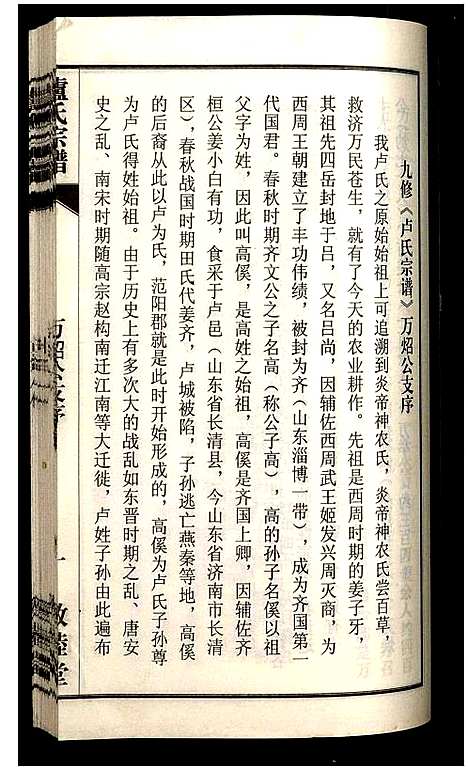 九修《卢氏宗谱》万炤公支序
我卢氏之原始始祖上可追溯到炎帝神农氏，炎帝神农氏尝百草，
救济万民苍生，就有了今天的农业耕作。先祖是西周时期的姜子牙，
其祖先四岳封地于吕，又名吕尚，因辅佐西周武王姬发兴周灭商，为
西周王朝建立了丰功伟绩，被封为齐（山东淄博一带），成为齐国第一
代国君。春秋时期齐文公之子名高（称公子高），高的孙子名傒以祖
父字为姓，因此叫高傒，是高姓之始祖，高傒是齐国上卿，因辅佐齐
桓公姜小白有功，食采于卢邑（山东省长清县，今山东省济南市长清
区），春秋战国时期田氏代姜齐，卢城被陷，子孙逃亡燕秦等地，高傒
的后裔从此以卢为氏，范阳郡就是此时开始形成的，高傒为卢氏子孙尊
为卢氏得姓始祖。由于历史上有多次大的战乱如东晋时期之乱、唐安
史之乱、南宋时期随高宗赵构南迁江南等大迁徙，卢姓子孙由此遍布
盧氏宗谱
万炤公支序
一
敦睦堂